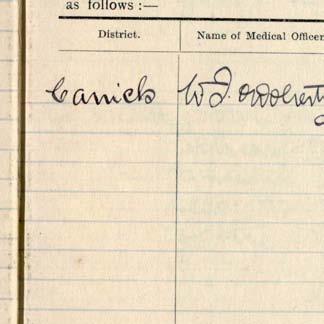 as follows :—
District. Name of Medical Officer
Carrick W. J. O'Doherty